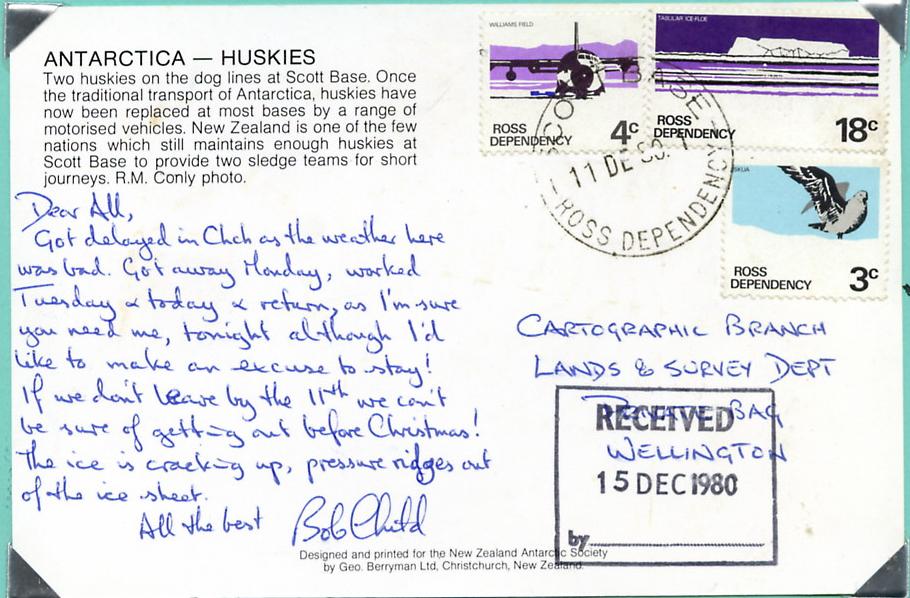 ANTARCTICA — HUSKIES
Two huskies on the dog lines at Scott Base. Once
the traditional transport of Antarctica, huskies have
now been replaced at most bases by a range of
motorised vehicles. New Zealand is one of the few
nations which still maintains enough huskies at
Scott Base to provide two sledge teams for short
journeys. R.M. Conly photo.
Dear All,
Got delayed in Chch as the weather here
was bad. Got away Monday, worked
Tuesday & today & return, as I'm sure
you need me, tonight although I'd
like to make an excuse to stay!
If we don't leave by the 11th we can't
be sure of getting out before Christmas!
The ice is cracking up, pressure ridges out
of the ice sheet.
All the best Bob Child
Designed and printed for the New Zealand Antarctic Society
by Geo. Berryman Ltd, Christchurch, New Zealand.
WILLIAMS FIELD
ROSS
DEPENDENCY 4c
TABULAR ICE-FLOE
ROSS
DEPENDENCY 18c
SKUA
ROSS
DEPENDENCY 3c
SCOTT BASE
11 DE 80
ROSS DEPENDENCY
CARTOGRAPHIC BRANCH
LANDS & SURVEY DEPT
PRIVATE BAG
WELLINGTON
RECEIVED
15 DEC 1980
by